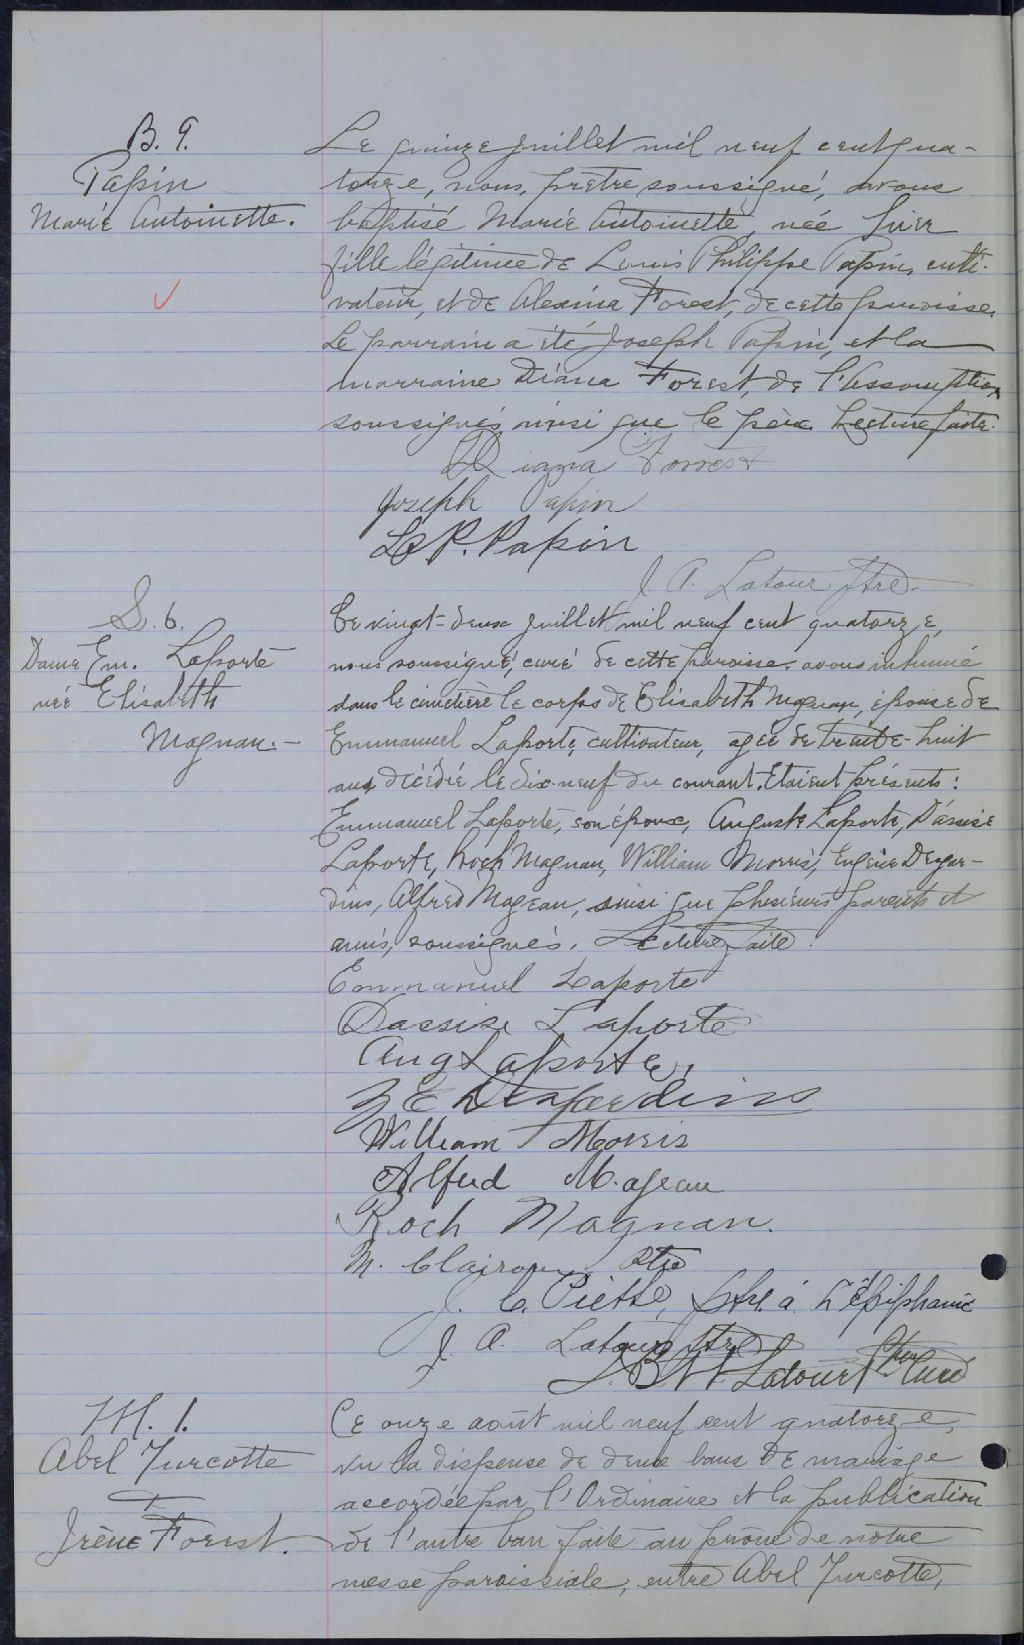 B. 9.
Papin
Marie Antoinette.
Le quinze juillet mil neuf cent qua-
torze, nous, prêtre soussigné, avons
baptisé Marie Antoinette, née hier
fille légitime de Louis Philippe Papin, culti-
vateur, et de Alexina Forest, de cette paroisse.
Le parrain a été Joseph Papin, et la
marraine Diana Forest, de l'Assomption
soussignés ainsi que le père. Lecture faite.
Diana Forrest
Joseph Papin
L. P. Papin
J. A. Latour Ptre.
S. 6.
Dame Em. Laporte
née Elisabeth
Magnan.-
Le vingt-deux juillet mil neuf cent quatorze,
nous soussigné, curé de cette paroisse, avons inhumé
dans le cimetière le corps de Elisabeth Magnan, épouse de
Emmanuel Laporte, cultivateur, agée de trente-huit
ans décédée le dix-neuf du courant. Etaient présents:
Emmanuel Laporte, son époux, Auguste Laporte, Dassise
Laporte, Roch Magnan, William Morris, Eugène Desjar-
dins, Alfred Mageau, ainsi que plusieurs parents et
amis, soussignés. Lecture faite.
Emmanuel Laporte
Dassise Laporte
Aug Laporte,
E Desjardins
William Morris
Alfred Mageau
Roch Magnan.
M. Clairoux Ptre
J. C. Piette, Ptre. à L'Epiphanie
J. A. Latour Ptre
Latour Ptre Curé
M. 1.
Abel Turcotte
+
Irène Forest.
Le onze août mil neuf cent quatorze,
vu la dispense de deux bans de mariage
accordée par l'Ordinaire et la publication
de l'autre ban faite au prône de notre
messe paroissiale, entre Abel Turcotte,